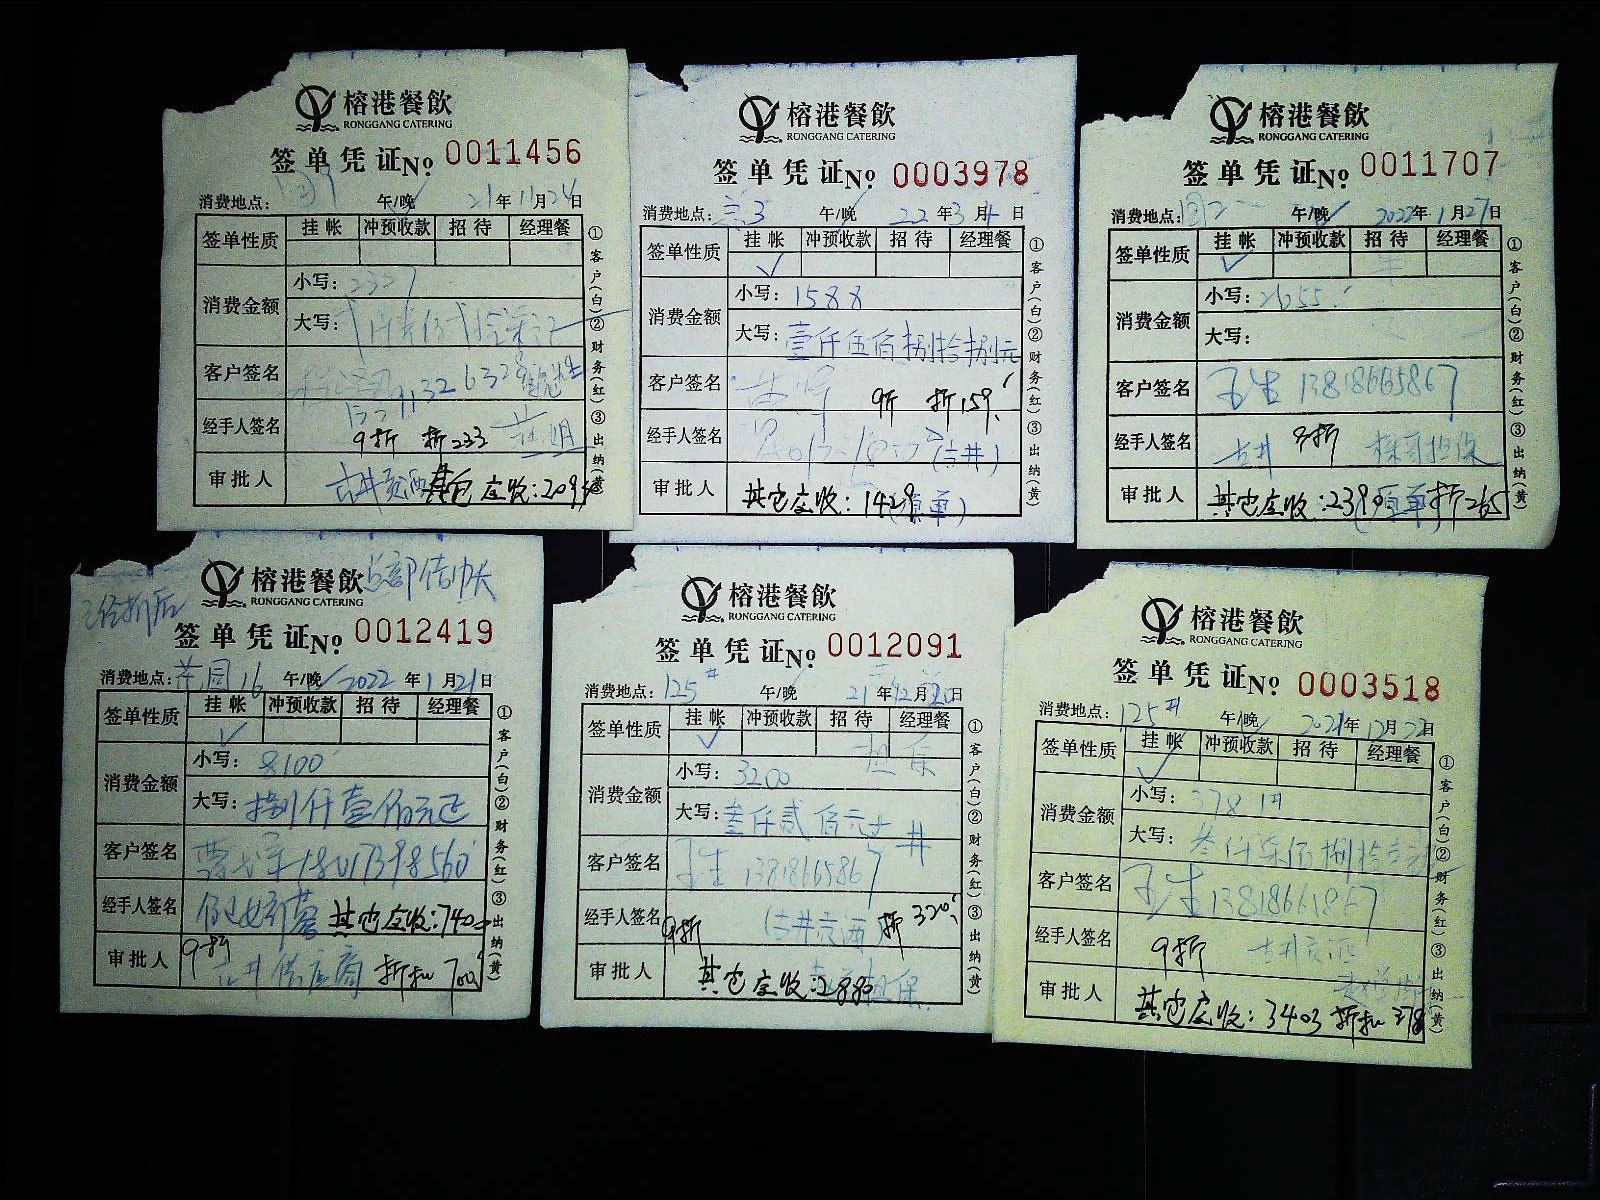 榕港餐飲
RONGGANG CATERING
签单凭证 No 0011456
消费地点： 午/晚 21年11月24日
签单性质 挂帐 冲预收款 招待 经理餐
消费金额 小写：2327
大写：
客户签名
经手人签名 9折 折233
审批人 其它应收：209
①客户(白)②财务(红)③出纳(黄)
榕港餐飲
RONGGANG CATERING
签单凭证 No 0003978
消费地点：京3 午/晚 22年3月1日
签单性质 挂帐 冲预收款 招待 经理餐
消费金额 小写：1588
大写：壹仟伍佰捌拾捌元
客户签名 9折 折159
经手人签名 (古井)
审批人 其它应收：1429 (原单)
①客户(白)②财务(红)③出纳(黄)
榕港餐飲
RONGGANG CATERING
签单凭证 No 0011707
消费地点： 午/晚 2022年1月27日
签单性质 挂帐 冲预收款 招待 经理餐
消费金额 小写：2655
大写：
客户签名 王生 13818665867
经手人签名 古井 9折 担保
审批人 其它应收：2390 (原单) 折265
①客户(白)②财务(红)③出纳(黄)
已经折后
榕港餐飲 总部借帐
RONGGANG CATERING
签单凭证 No 0012419
消费地点：花园16 午/晚 2022年1月21日
签单性质 挂帐 冲预收款 招待 经理餐
消费金额 小写：8100
大写：捌仟壹佰元正
客户签名 18017398560
经手人签名 其它应收：7400
审批人 9折 古井供应商 折扣 700
①客户(白)②财务(红)③出纳(黄)
榕港餐飲
RONGGANG CATERING
签单凭证 No 0012091
消费地点：125# 午/晚 21年12月20日
签单性质 挂帐 冲预收款 招待 经理餐
担保
消费金额 小写：3200
大写：叁仟贰佰元
客户签名 王生 13818665867
经手人签名 9折 (古井贡酒) 折320
审批人 其它应收：2880 担保
①客户(白)②财务(红)③出纳(黄)
榕港餐飲
RONGGANG CATERING
签单凭证 No 0003518
消费地点：125# 午/晚 2021年12月22日
签单性质 挂帐 冲预收款 招待 经理餐
消费金额 小写：3781
大写：叁仟柒佰捌拾壹元
客户签名 王生 13818661867
经手人签名 9折 古井贡酒
审批人 其它应收：3403 折扣 378
①客户(白)②财务(红)③出纳(黄)